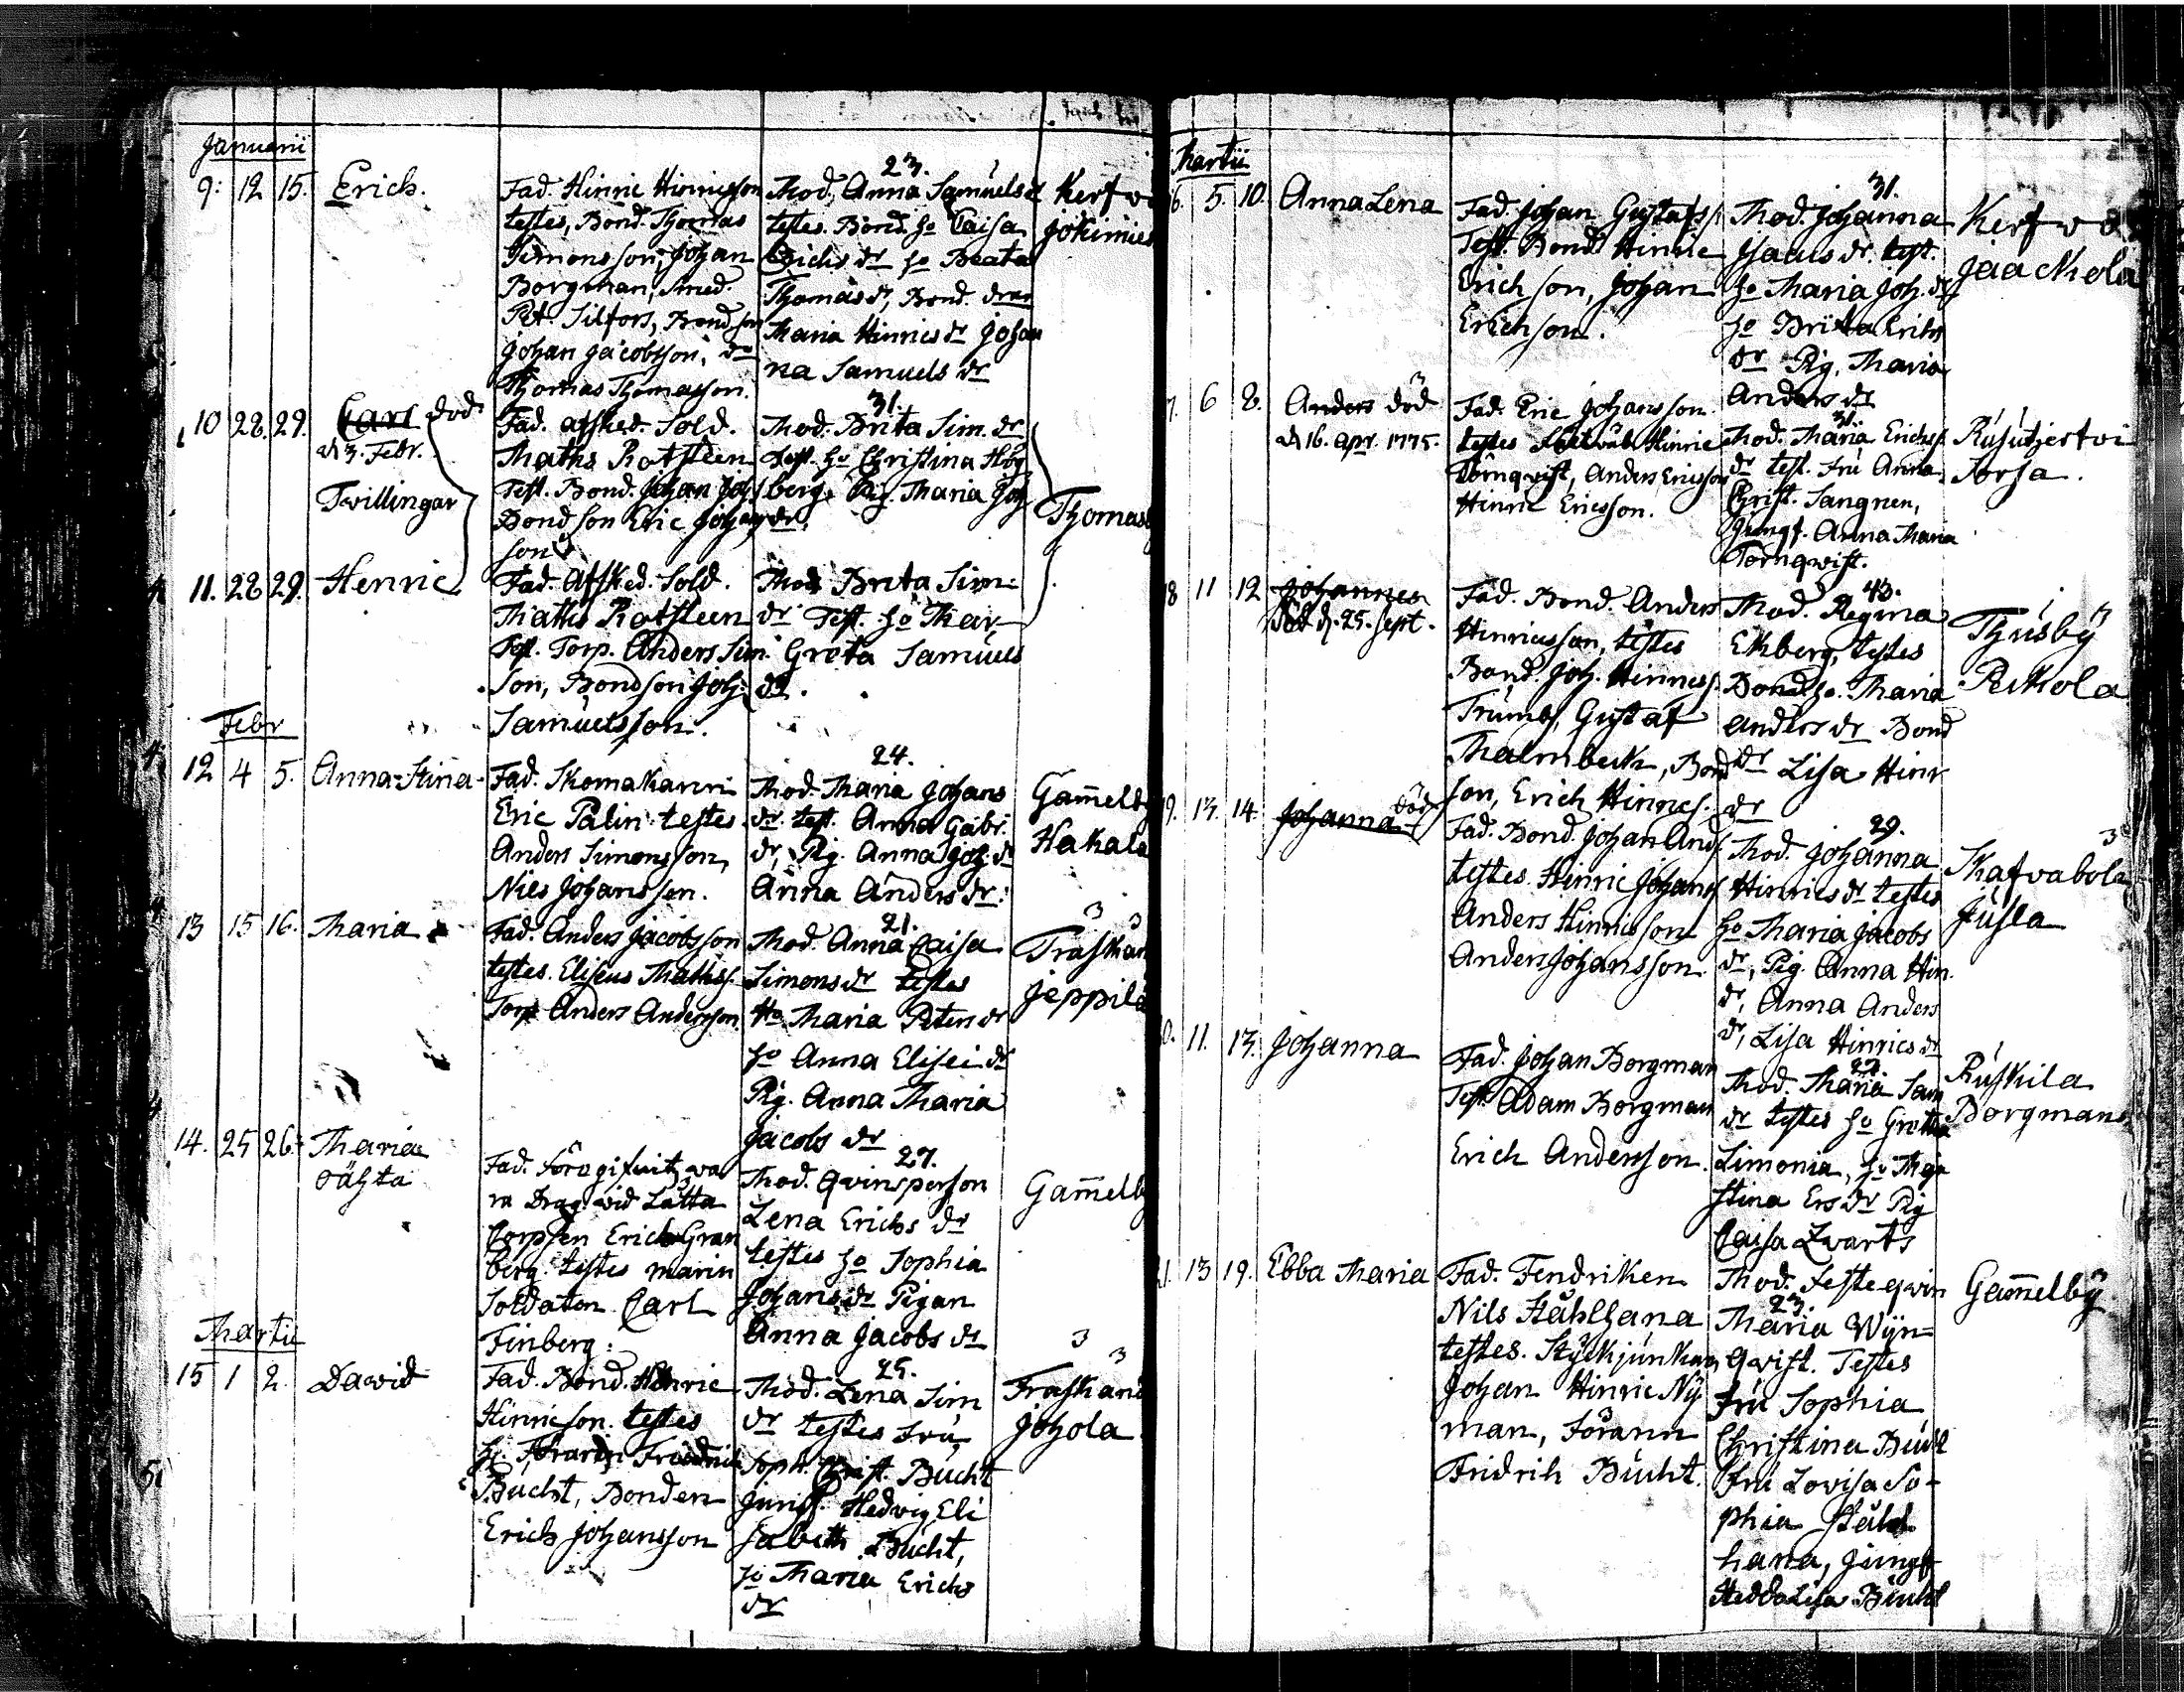 Januarii
9. 12 15. Erich.
Fad. Hinric Hinricsson
testes, Bond. Thomas
Simonsson, Johan
Borgman, Smed.
Pet. Silfors, Bondson
Johan Jacobsson, dr
Thomas Thomasson.
23.
Mod. Anna Samuels d
testes. Bond. ho Caisa
Erichs dr ho Beata
Thomas dr, Bond. drar
Maria Hinrics dr Johan
na Samuels dr
Kerfw
Jokimies
10 28. 29. Carl död
d. 3. Febr.
Twillingar
Fad. afsked. Sold.
Maths Rotsteen
Test. Bond. Johan Joh
Bondson Eric Johan
son
31.
Mod. Brita Sim. dr
Test. ho Christina Hög
berg, Pig. Maria Joh
dr.
Thomasb
11. 28 29. Henric
Fad. Afsked. Sold.
Maths Rotsteen
Test. Torp. Anders Sim
son, Bondson Joh.
Samuelsson.
Mod. Brita Sim.
dr Test. ho Mar.
Greta Samuels
dr.
Febr
12 4 5. Anna Stina
Fad. Skomakaren
Eric Palin testes
Anders Simonsson,
Nils Johansson.
24.
Mod. Maria Johans
dr. test. Anna Gabr.
dr, Pig. Anna Joh. dr
Anna Anders dr.
Gam̄elb
Hakala
13 15 16. Maria
Fad. Anders Jacobsson
testes. Eliseus Mathss.
Torp Anders Andersson
21.
Mod. Anna Caisa
Simons dr testes
Ho Maria Peters dr
ho Anna Elisei dr
Pig. Anna Maria
Jacobs dr
Träskän
Jeppila
14. 25 26. Maria
oächta
Fad. föregifvits wa
ra Drag. wid Lätta
Corpsen Erich Gran
berg. testes marin
Soldaten Carl
Finberg.
27.
Mod. Qvinsperson
Lena Erichs dr
testes ho Sophia
Johans dr Pigan
Anna Jacobs dr
Gam̄elb
Martii
15 1 2. Dawid
Fad. Bond. Henric
Hinricson. testes
Fridrich
Bucht, Bonden
Erich Johansson
25.
Mod. Lena Sim
dr testes Fru
Soph. Christ. Bucht
Jungf. Hedwig Eli
sabeth Bucht,
ho Maria Erichs
dr
Träskänd
Johola
Martii
6. 5. 10. Anna Lena
Fad. Johan Gustafss.
Test. Bond. Hinric
Erichson, Johan
Erichson.
31.
Mod. Johanna
Isaacs dr. test.
ho Maria Joh. dr
ho Brita Erichs
dr Pig. Maria
Anders dr
Kerfw
Jaackola
7. 6 8. Anders död
d. 16. Apr. 1775.
Fad. Eric Johansson
testes Hinric
Törnqwist, Anders Ericsson
Hinric Ericsson.
31.
Mod. Maria Erichs
dr test. Fru Anna
Christ. Sangren,
Jungf. Anna Maria
Törnqwist.
Rusutjerfwi
Torsa.
18 11 12 Johannes
död d. 25. Sept.
Fad. Bond. Anders
Hinricsson, testes
Bond. Joh. Hinricss.
Trumb, Gustaf
Malmbeck, Bond
son, Erich Hinricss.
43.
Mod. Regina
Ekberg, testes
Bond. ho. Maria
Anders dr Bond
dr Lisa Hinr
dr
Thusby
Pekkola
9. 13. 14. Johanna död
Fad. Bond. Johan Ands
testes. Hinric Johanss
Anders Hinricsson
Anders Johansson
29.
Mod. Johanna
Hinrics dr testes
ho Maria Jacobs
dr, Pig. Anna Hin.
dr, Anna Anders
dr, Lisa Hinrics dr
Skafvabola
Jusla
0. 11. 13. Johanna
Fad. Johan Borgman
Test. Adam Borgman
Erich Andersson.
Mod. Maria Sam
dr testes ho Greta
Limonia, ho Maja
Stina Ers dr Pig
Caisa Zwarts
Ruskila
Borgmans
1. 13 19. Ebba Maria
Fad. Fendriken
Nils Stålhana
testes. Styckjunkaren
Johan Hinric Ny
man, Föraren
Fridrih Bucht.
Mod. Feste qwin
23.
Maria Wijn=
qwist. Testes
Fru Sophia
Christina Bucht
Fru Lovisa So-
phia Stål
hana, Jungf
Hedda Lisa Bucht
Gam̄elby